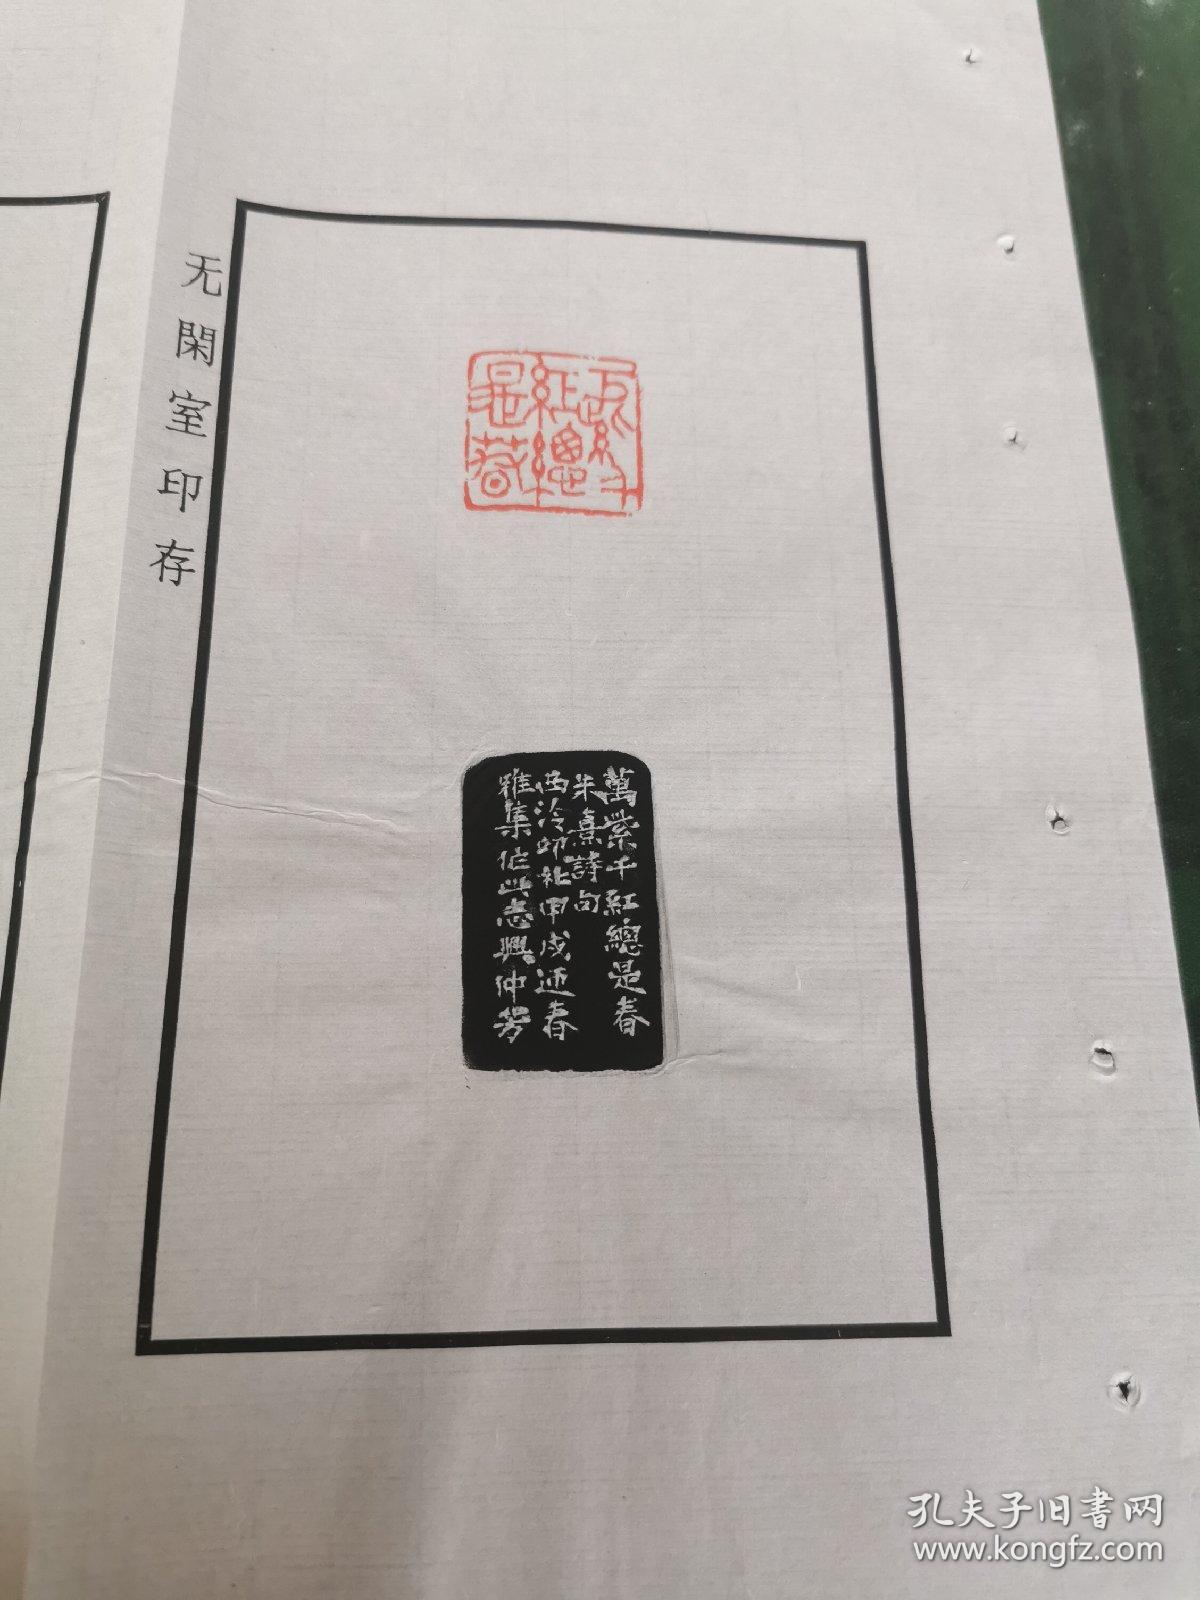 无閑室印存
萬紫千紅總是春
萬紫千紅總是春
朱熹詩句
西泠印社甲戌迎春
雅集作此志興仲芳
孔夫子旧书网
www.kongfz.com